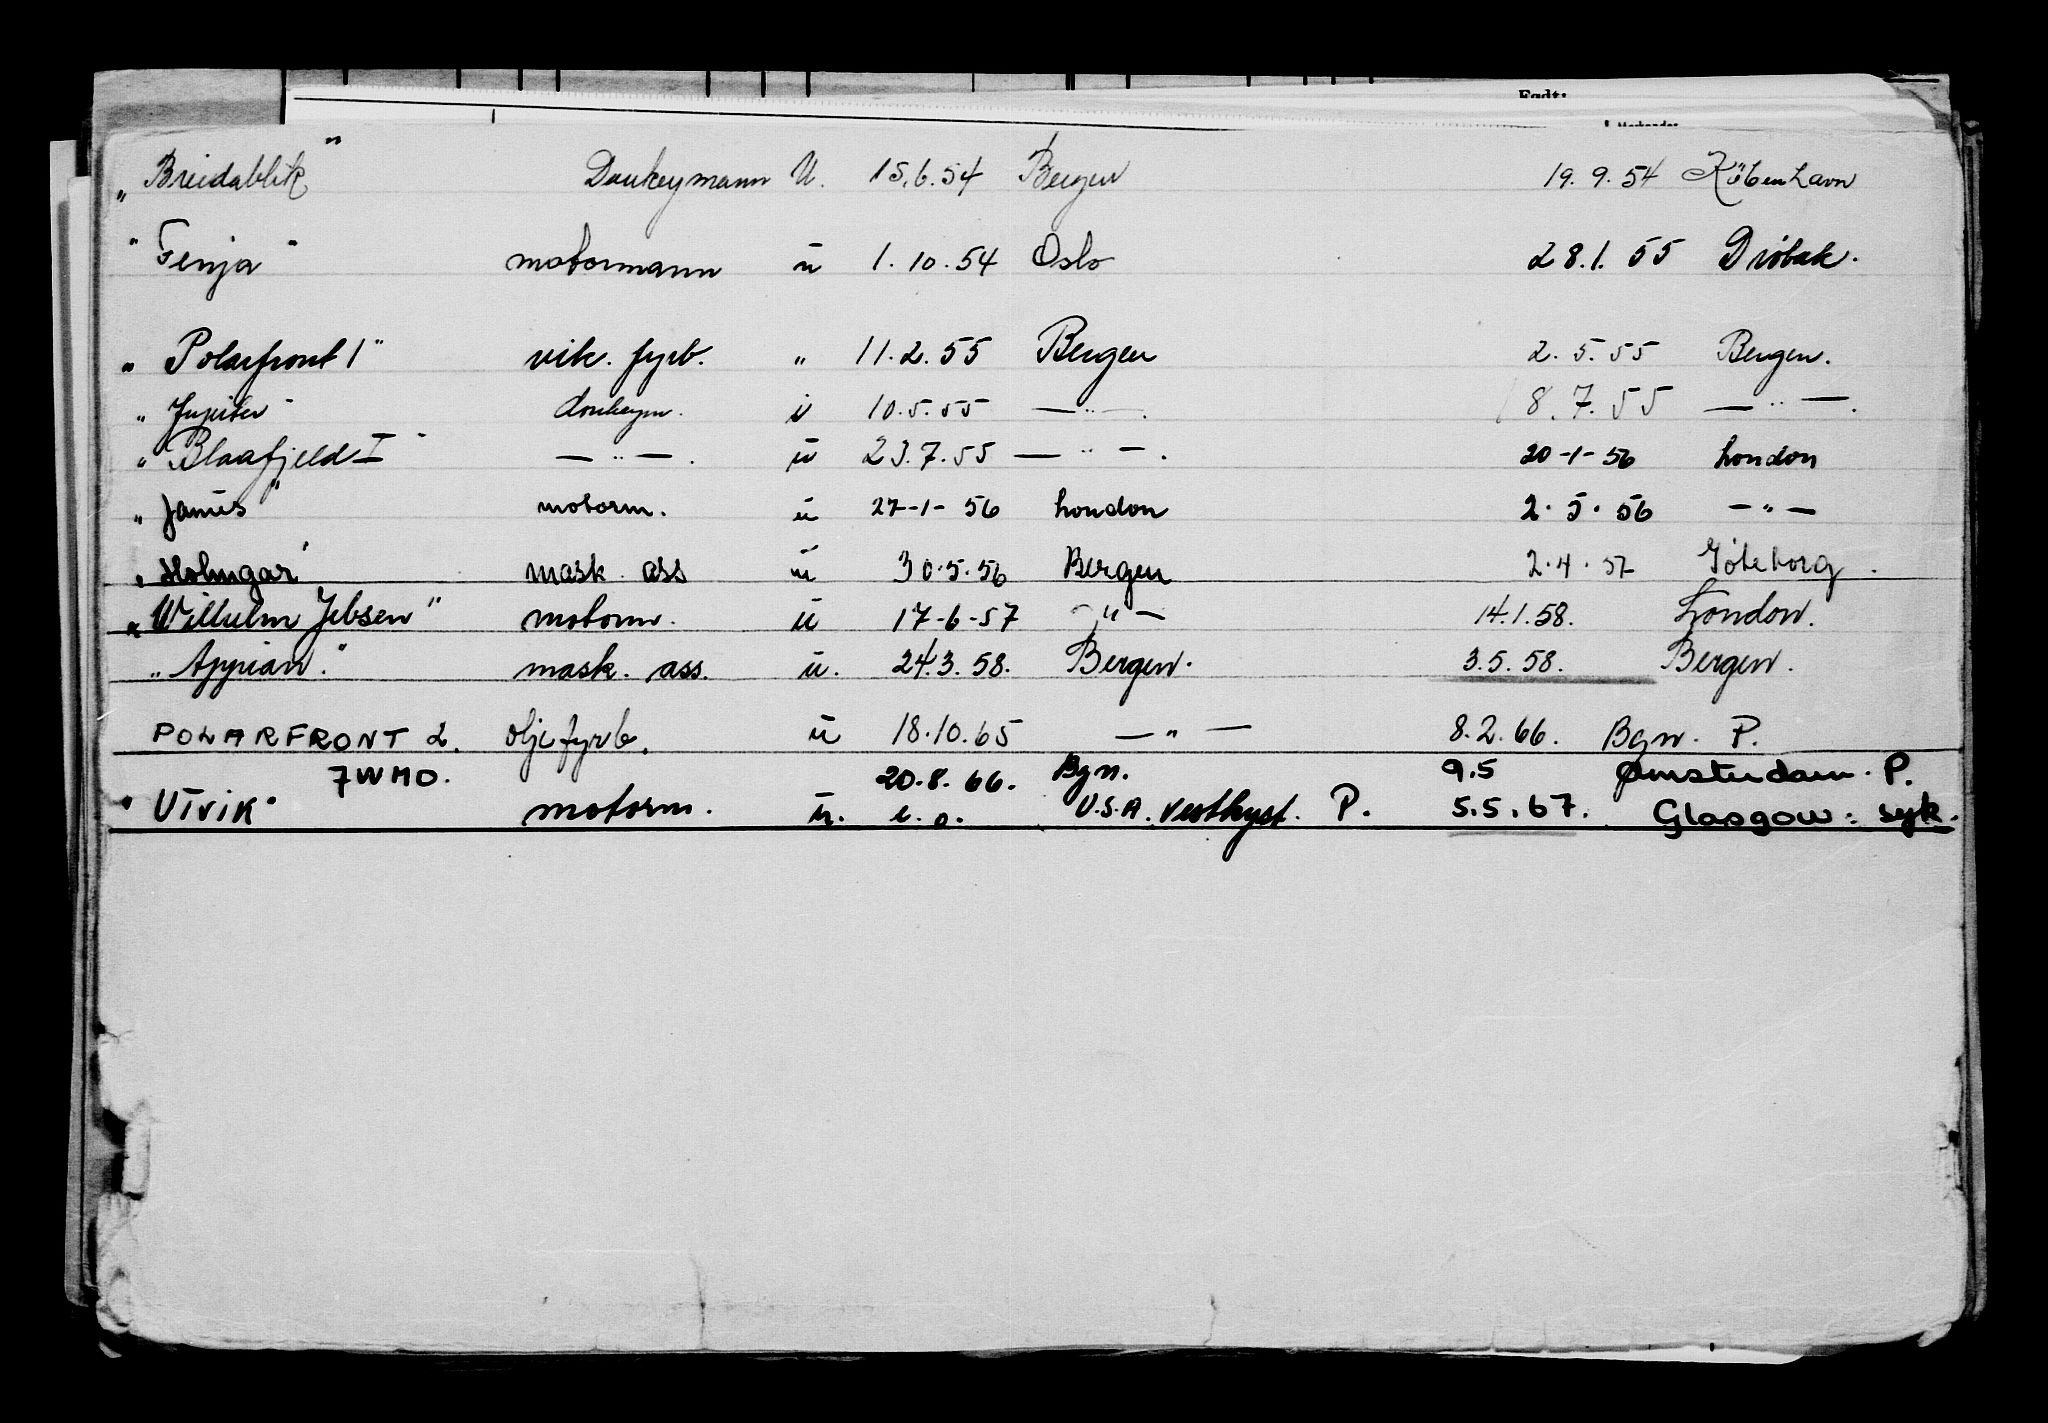 Født:
"Breidablik" Donkeymann U. 15.6.54 Bergen 19.9.54 København
"Fenja" motormann u 1.10.54 Oslo 28.1.55 Drøbak.
"Polarfront 1" vik. fyrb. " 11.2.55 Bergen 2.5.55 Bergen.
"Jupiter" donkeym. u 10.5.55 — " — . 8.7.55 — " — .
"Blaafjeld I" — " — . u 23.7.55 — " — . 20-1-56 London
"Janus" motorm. u 27-1-56 London 2.5.56 — " —
"Holmgar" mask. ass u 30.5.56 Bergen 2.4.57 Göteborg.
"Wilhelm Jebsen" motorm. u 17-6-57 — " — 14.1.58. London.
"Appian." mask. ass. u. 24.3.58. Bergen. 3.5.58. Bergen.
POLARFRONT 2. oljefyrb. u 18.10.65 — " — 8.2.66. Bgn. P.
7WMO. 20.8.66. Bgn. 9.5 Amsterdam. P.
"UTVIK" motorm. u. c.a. U.S.A. vestkyst. P. 5.5.67. Glasgow: syk.